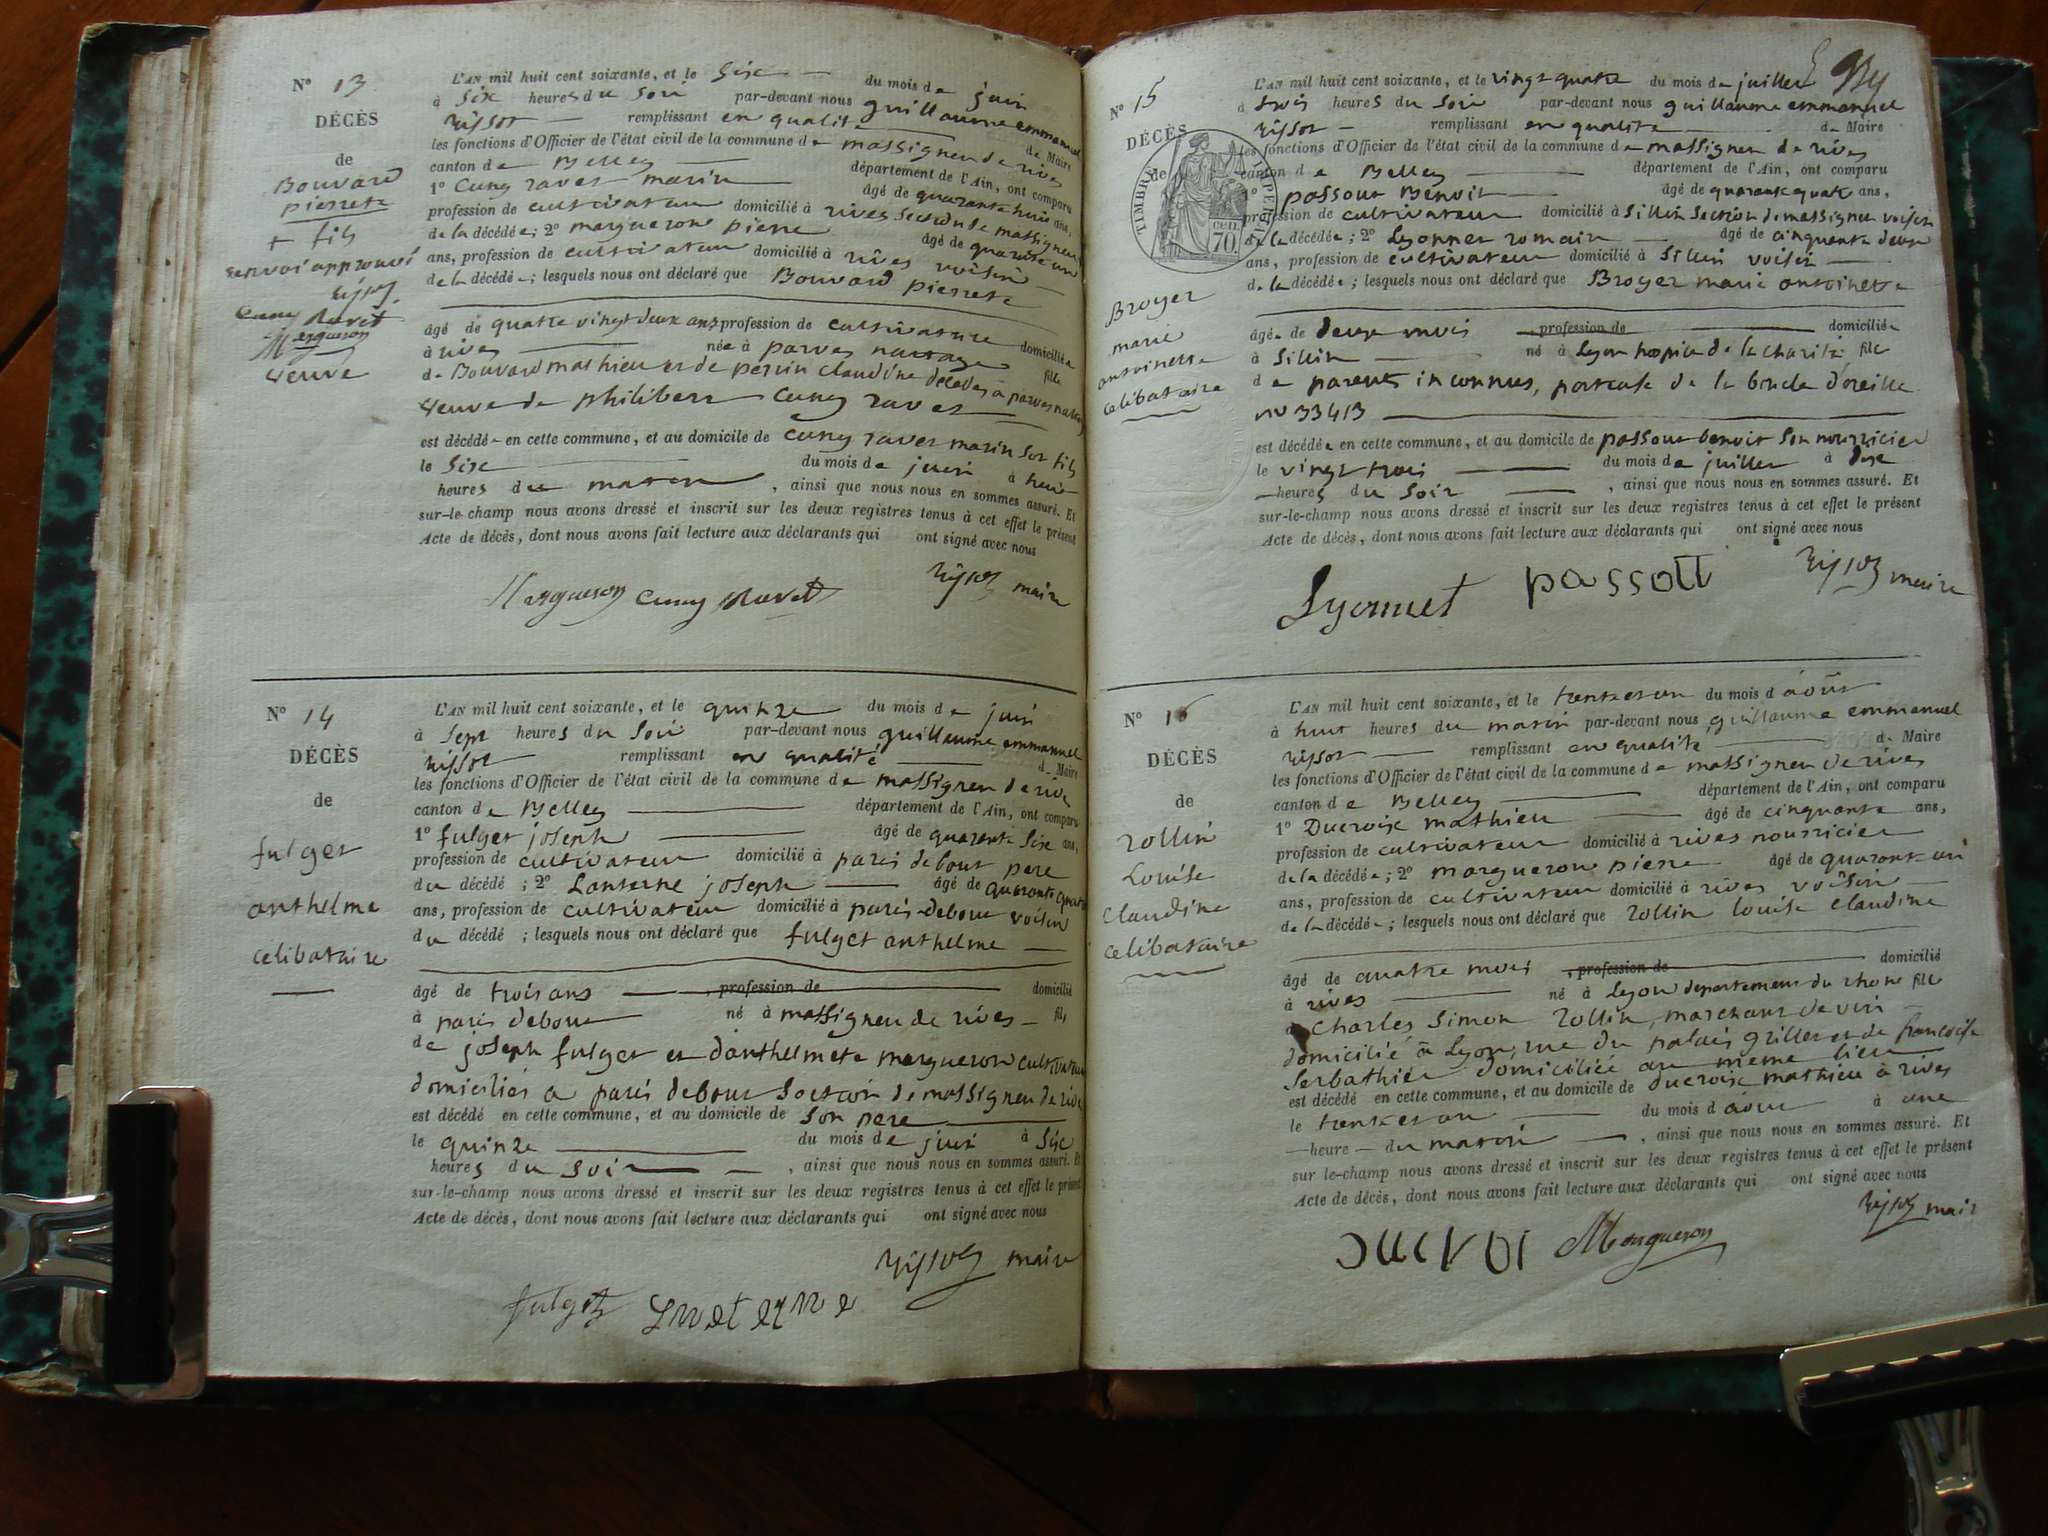 N° 13
DÉCÈS
de
Bouvard
pierrete
+ fils
renvoi approuvé
Rissoz
Cuny Ravet
Margueron
veuve
L'AN mil huit cent soixante, et le Six du mois de juin
à Six heures du Soir par-devant nous guillaume emmanuel
rissot remplissant en qualite de Maire
les fonctions d'Officier de l'état civil de la commune de massigneu de rives
canton de Belley département de l'Ain, ont comparu
1° Cuny ravet marin âgé de quarante huit ans,
profession de cultivateur domicilié à rives Section de massigneu
de la décédée; 2° margueron pierre âgé de quarante un
ans, profession de cultivateur domicilié à rives voisin
de la décédée; lesquels nous ont déclaré que Bouvard pierrete
âgé de quatre vingt deux ans profession de cultivatrice domiciliée
à rives née à parves nattage fille
de Bouvard mathieu et de perrin claudine décédés à parves nattage
veuve de philibert Cuny ravet
est décédée en cette commune, et au domicile de Cuny ravet marin son fils
le Six du mois de juin à huit
heures du matin, ainsi que nous nous en sommes assuré. Et
sur-le-champ nous avons dressé et inscrit sur les deux registres tenus à cet effet le présent
Acte de décès, dont nous avons fait lecture aux déclarants qui ont signé avec nous
Margueron Cuny Ravet Rissoz maire
N° 14
DÉCÈS
de
fulget
anthelme
celibataire
L'AN mil huit cent soixante, et le quinze du mois de juin
à Sept heures du Soir par-devant nous guillaume emmanuel
rissot remplissant en qualité de Maire
les fonctions d'Officier de l'état civil de la commune de massigneu de rive
canton de Belley département de l'Ain, ont comparu
1° fulget joseph âgé de quarante Six ans,
profession de cultivateur domicilié à paris debout pere
du décédé ; 2° Lanterne joseph âgé de quarante quatre
ans, profession de cultivateur domicilié à paris-debout voisin
du décédé ; lesquels nous ont déclaré que fulget anthelme
âgé de trois ans , profession de domicilié
à paris debout né à massigneu de rives fils
de joseph fulget et d'anthelmete margueron cultivateur
domiciliés a paris debout Section de massigneu de rive
est décédé en cette commune, et au domicile de Son pere
le quinze du mois de juin à Six
heures du Soir, ainsi que nous nous en sommes assuré. Et
sur-le-champ nous avons dressé et inscrit sur les deux registres tenus à cet effet le présent
Acte de décès, dont nous avons fait lecture aux déclarants qui ont signé avec nous
Rissoz maire
fulget
N° 15
DÉCÈS
de
TIMBRE IMPERIAL
70 cen.
Broyer
marie
antoinette
celibataire
L'AN mil huit cent soixante, et le vingt quatre du mois de juillet
à trois heures du Soir par-devant nous guillaume emmanuel
rissot remplissant en qualite de Maire
les fonctions d'Officier de l'état civil de la commune de massigneu de rives
canton de Belley département de l'Ain, ont comparu
1° passout Benoit âgé de quarante quatre ans,
profession de cultivateur domicilié à Sillin Section de massigneu voisin
de la décédée; 2° Lyonnet romain âgé de cinquante deux
ans, profession de cultivateur domicilié à Sillin voisin
de la décédée; lesquels nous ont déclaré que Broyer marie antoinette
âgée de deux mois , profession de domiciliée
à Sillin né à Lyon hospice de la charité fille
de parents inconnus, porteuse de la boucle d'oreille
no 33413
est décédée en cette commune, et au domicile de passout benoit Son nourricier
le vingt trois du mois de juillet à dix
heures du Soir, ainsi que nous nous en sommes assuré. Et
sur-le-champ nous avons dressé et inscrit sur les deux registres tenus à cet effet le présent
Acte de décès, dont nous avons fait lecture aux déclarants qui ont signé avec nous
Lyonnet passott Rissoz maire
N° 16
DÉCÈS
de
rollin
Louise
claudine
celibataire
L'AN mil huit cent soixante, et le trente et un du mois d'août
à huit heures du matin par-devant nous guillaume emmanuel
rissot remplissant en qualite de Maire
les fonctions d'Officier de l'état civil de la commune de massigneu de rives
canton de Belley département de l'Ain, ont comparu
1° Ducroix mathieu âgé de cinquante ans,
profession de cultivateur domicilié à rives nourricier
de la décédée; 2° margueron pierre âgé de quarante un
ans, profession de cultivateur domicilié à rives voisin
de la décédée; lesquels nous ont déclaré que rollin louise claudine
âgé de quatre mois , profession de domicilié
à rives né à Lyon departement du rhone fille
de Charles Simon rollin, marchant de vin
domicilié à Lyon, rue du palais grillet et de francoise
Serbathier domiciliée au meme lieu
est décédée en cette commune, et au domicile de ducroix mathieu à rives
le trente et un du mois d'aout à une
heure du matin, ainsi que nous nous en sommes assuré. Et
sur-le-champ nous avons dressé et inscrit sur les deux registres tenus à cet effet le présent
Acte de décès, dont nous avons fait lecture aux déclarants qui ont signé avec nous
Margueron Rissoz maire